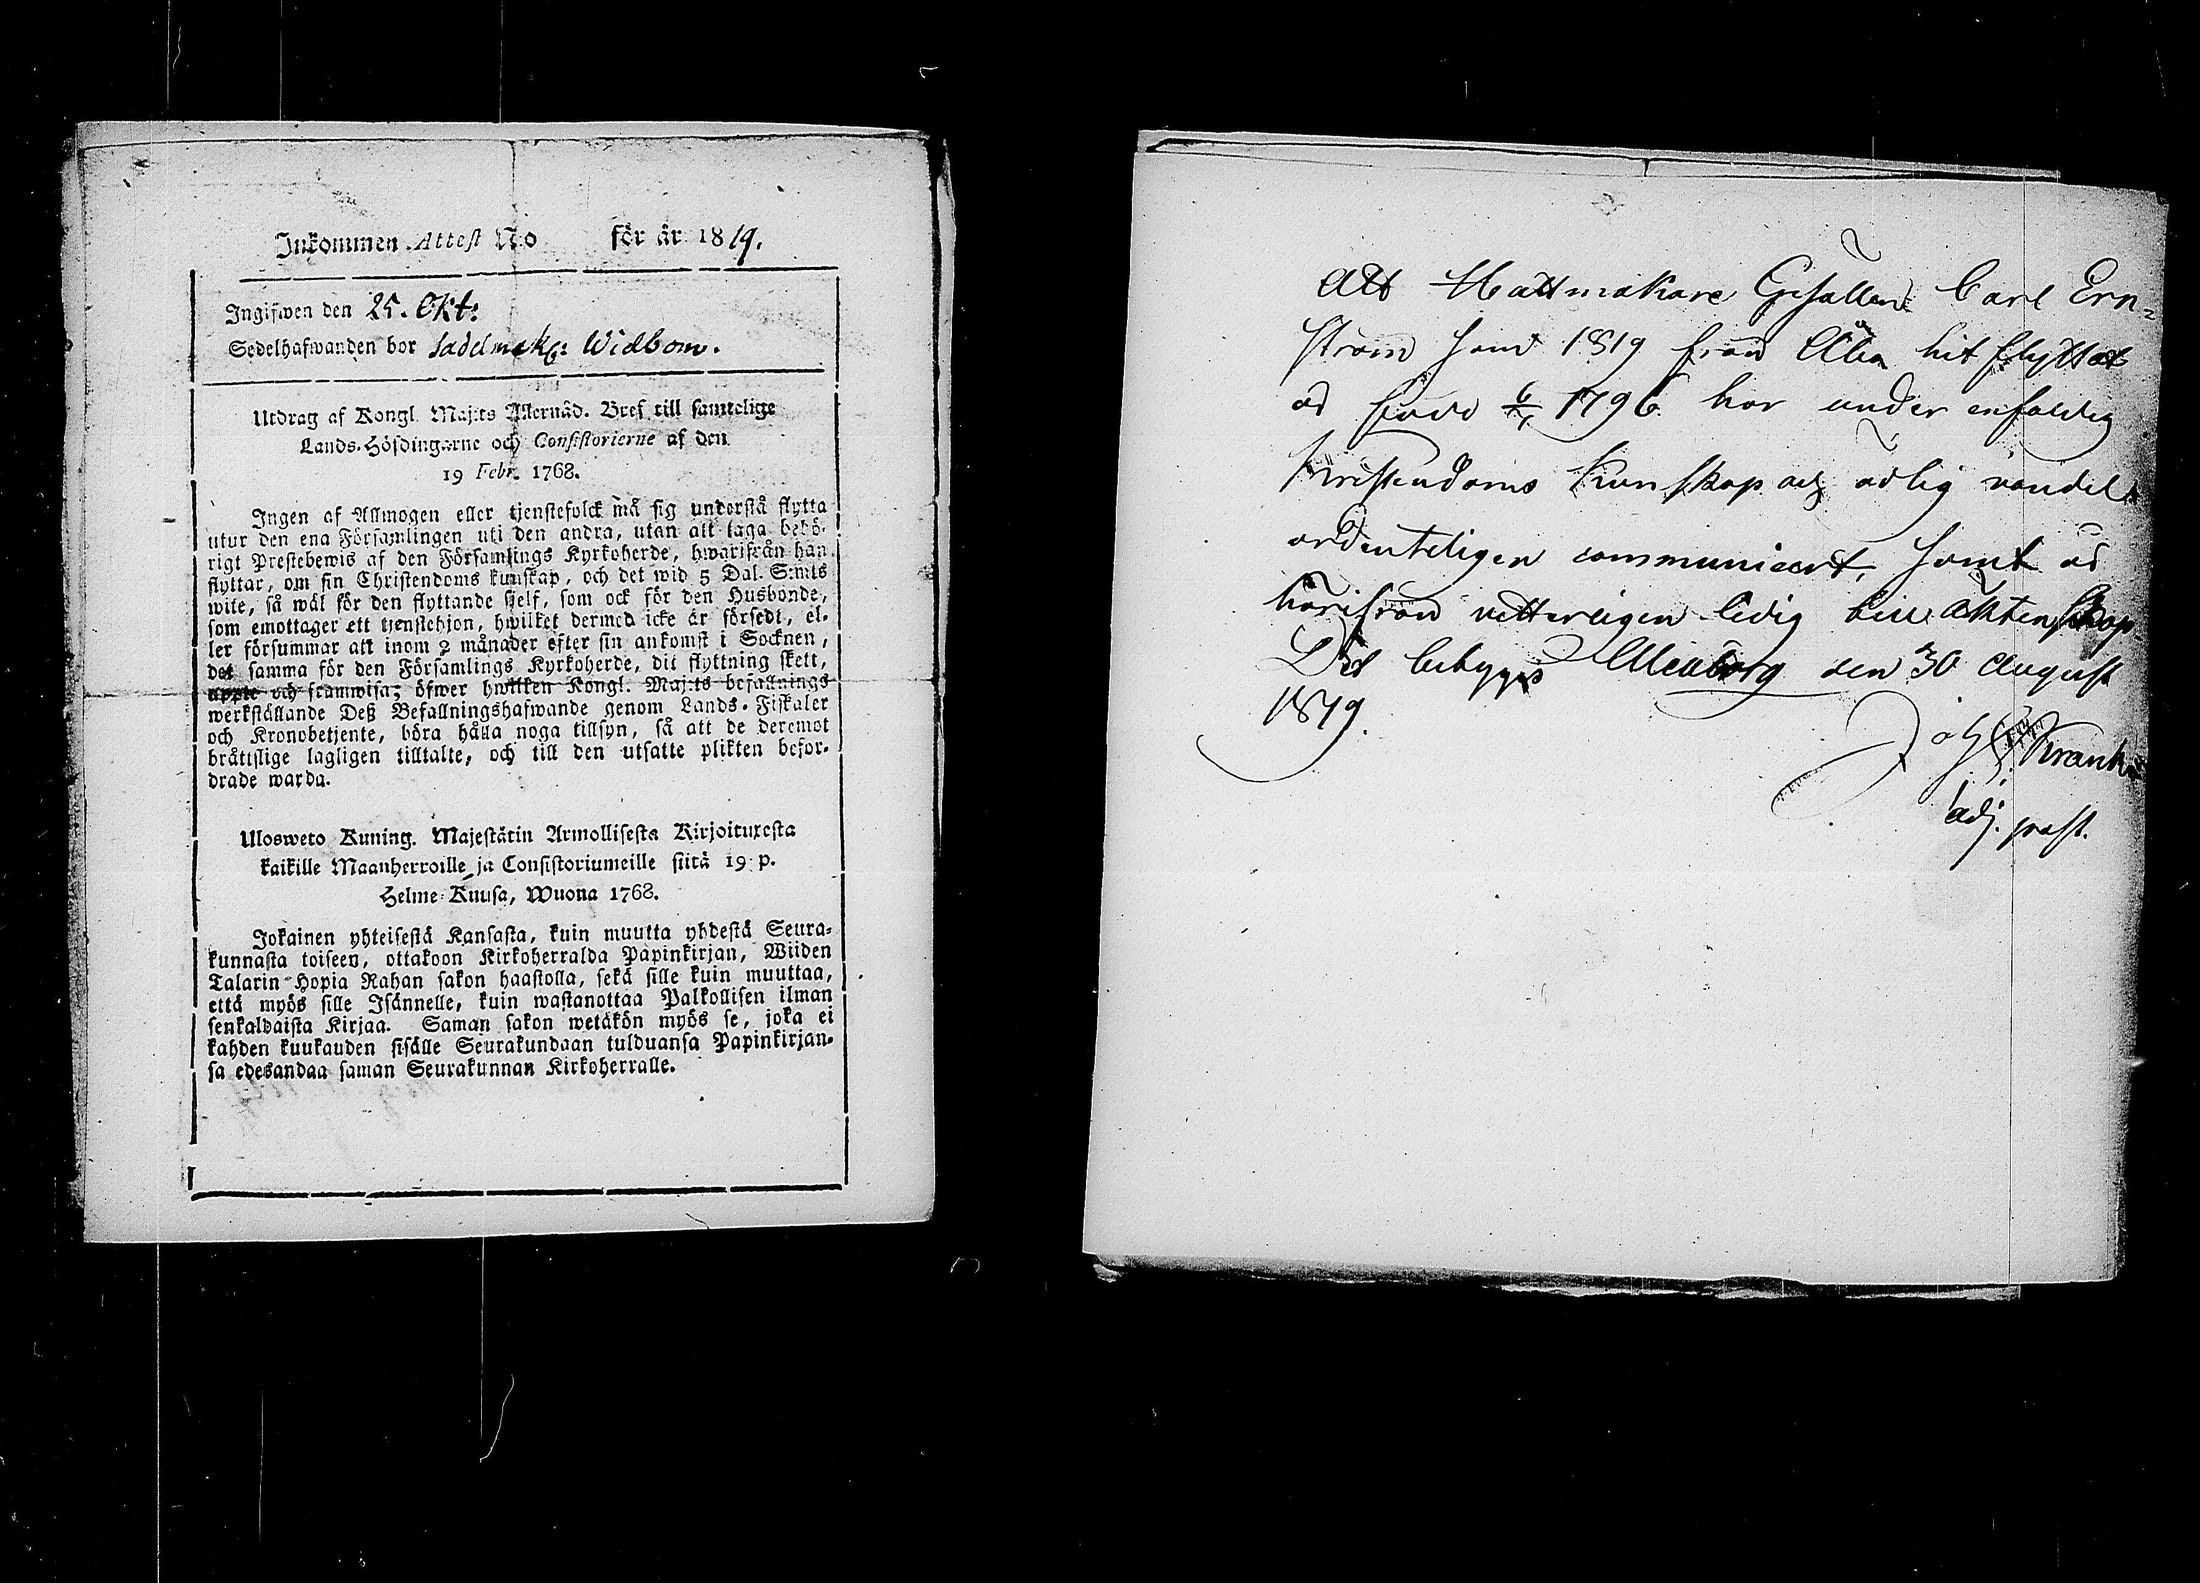 Inkommen Attest No för år 1819.
Ingifwen den 25. Okt:
Sedelhafwanden bor Sadelmak: Widbom.
Utdrag af Kongl. Maj:ts Allernåd. Bref till samtelige
Lands-Höfdingarne och Consistorierne af den
19 Febr. 1768.
Ingen af Allmogen eller tjenstefolck må sig understå flytta
utur den ena Församlingen uti den andra, utan att taga behö-
rigt Prestebewis af den Församlings Kyrkoherde, hwarifrån han
flyttar, om sin Christendoms kunskap, och det wid 5 Dal. S:mts
wite, så wäl för den flyttande sjelf, som ock för den Husbonde,
som emottager ett tjenstehjon, hwilket dermed icke är försedt, el-
ler försummar att inom 2 månader efter sin ankomst i Socknen,
det samma för den Församlings Kyrkoherde, dit flyttning skett,
uppte och framwisa; öfwer hwilken Kongl. Maj:ts befallnings
werkställande Deß Befallningshafwande genom Lands-Fiskaler
och Kronobetjente, böra hålla noga tillsyn, så att de deremot
bråttslige lagligen tilltalte, och till den utsatte plikten befor-
drade warda.
Ulosweto Kuning. Majestätin Armollisesta Kirjoituxesta
kaikille Maanherroille ja Consistoriumeille siitä 19 p.
Helme-Kuusa, Wuona 1768.
Jokainen yhteisestä Kansasta, kuin muutta yhdestä Seura-
kunnasta toiseen, ottakoon Kirkoherralda Papinkirjan, Wiiden
Talarin Hopia Rahan sakon haastolla, sekä sille kuin muuttaa,
että myös sille Isännelle, kuin wastanottaa Palkollisen ilman
senkaldaista Kirjaa. Saman sakon wetäkön myös se, joka ei
kahden kuukauden sisälle Seurakundaan tulduansa Papinkirjan-
sa edesandaa saman Seurakunnan Kirkoherralle.
Att Hattmakare Gesällen Carl Ern-
ström som 1819 från Åbo hit flyttat
är född 6/1 1796 har under enfaldig
Kristendoms Kunskap och ärlig vandel
ordenteligen communicert, samt är
härifrån vetterligen ledig till Äktenskap
Det betygas Uleåborg den 30 August
1819.
Krank
adj. past.